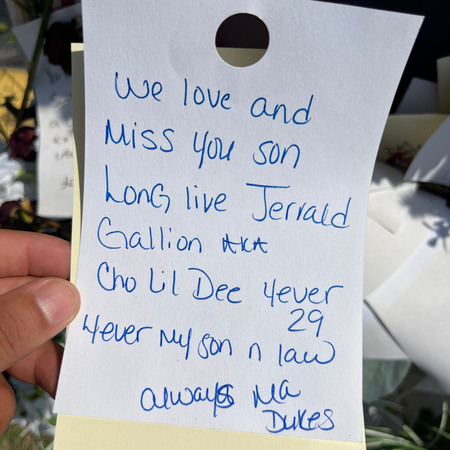 We love and
Miss you son
Long live Jerrald
Gallion AKA
Cho Lil Dee 4ever
29
4ever My son n law
always Ma
Dukes